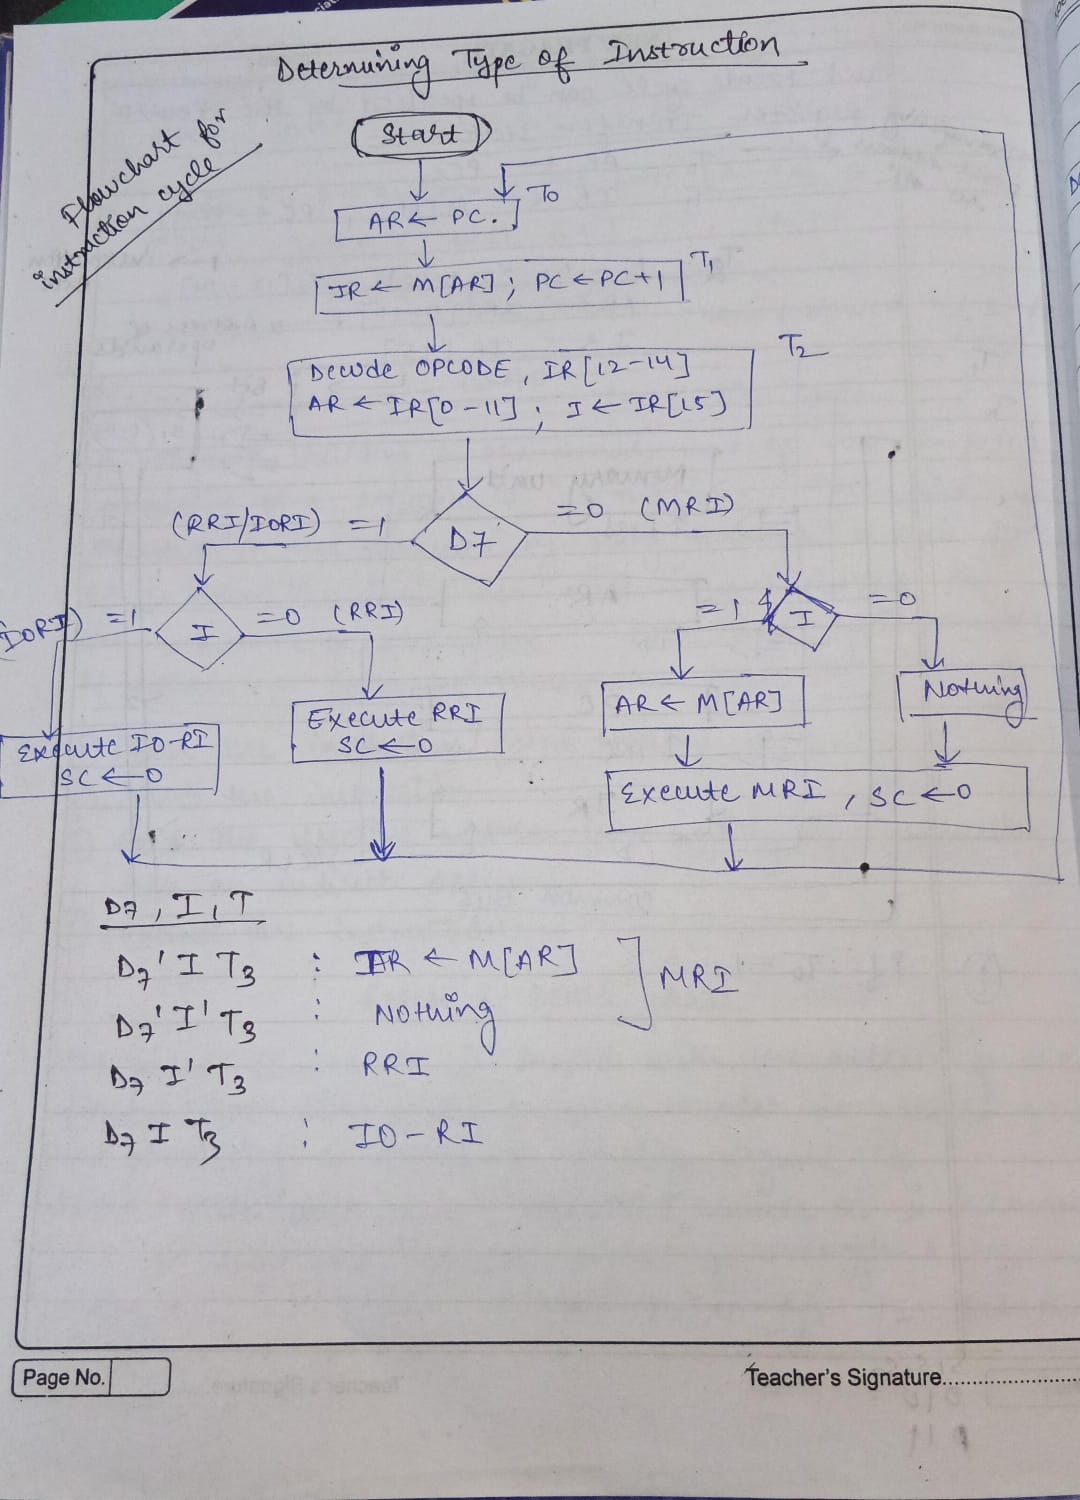 Determining Type of Instruction
Flowchart for
instruction cycle
Start
T0
AR ← PC.
IR ← M[AR] ; PC ← PC+1
T1
T2
Decode OPCODE, IR[12-14]
AR ← IR[0-11] ; I ← IR[15]
(RRI/IORI) =1
D7
=0 (MRI)
IORI) =1
I
=0 (RRI)
=1
I
=0
AR ← M[AR]
Nothing
Execute RRI
SC ← 0
Execute IO-RI
SC ← 0
Execute MRI , SC ← 0
D7, I, T
D7' I T3 : AR ← M[AR]
D7' I' T3 : Nothing
] MRI
D7 I' T3 : RRI
D7 I T3 : IO-RI
Page No.
Teacher's Signature